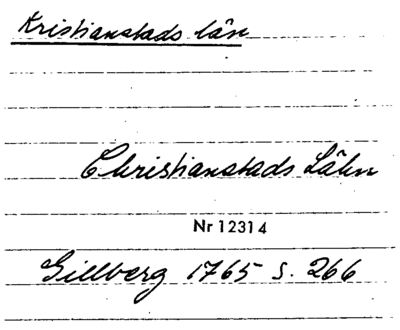 Kristianstads län
Christianstads Lähn
Nr 12314
Gillberg 1765 s. 266